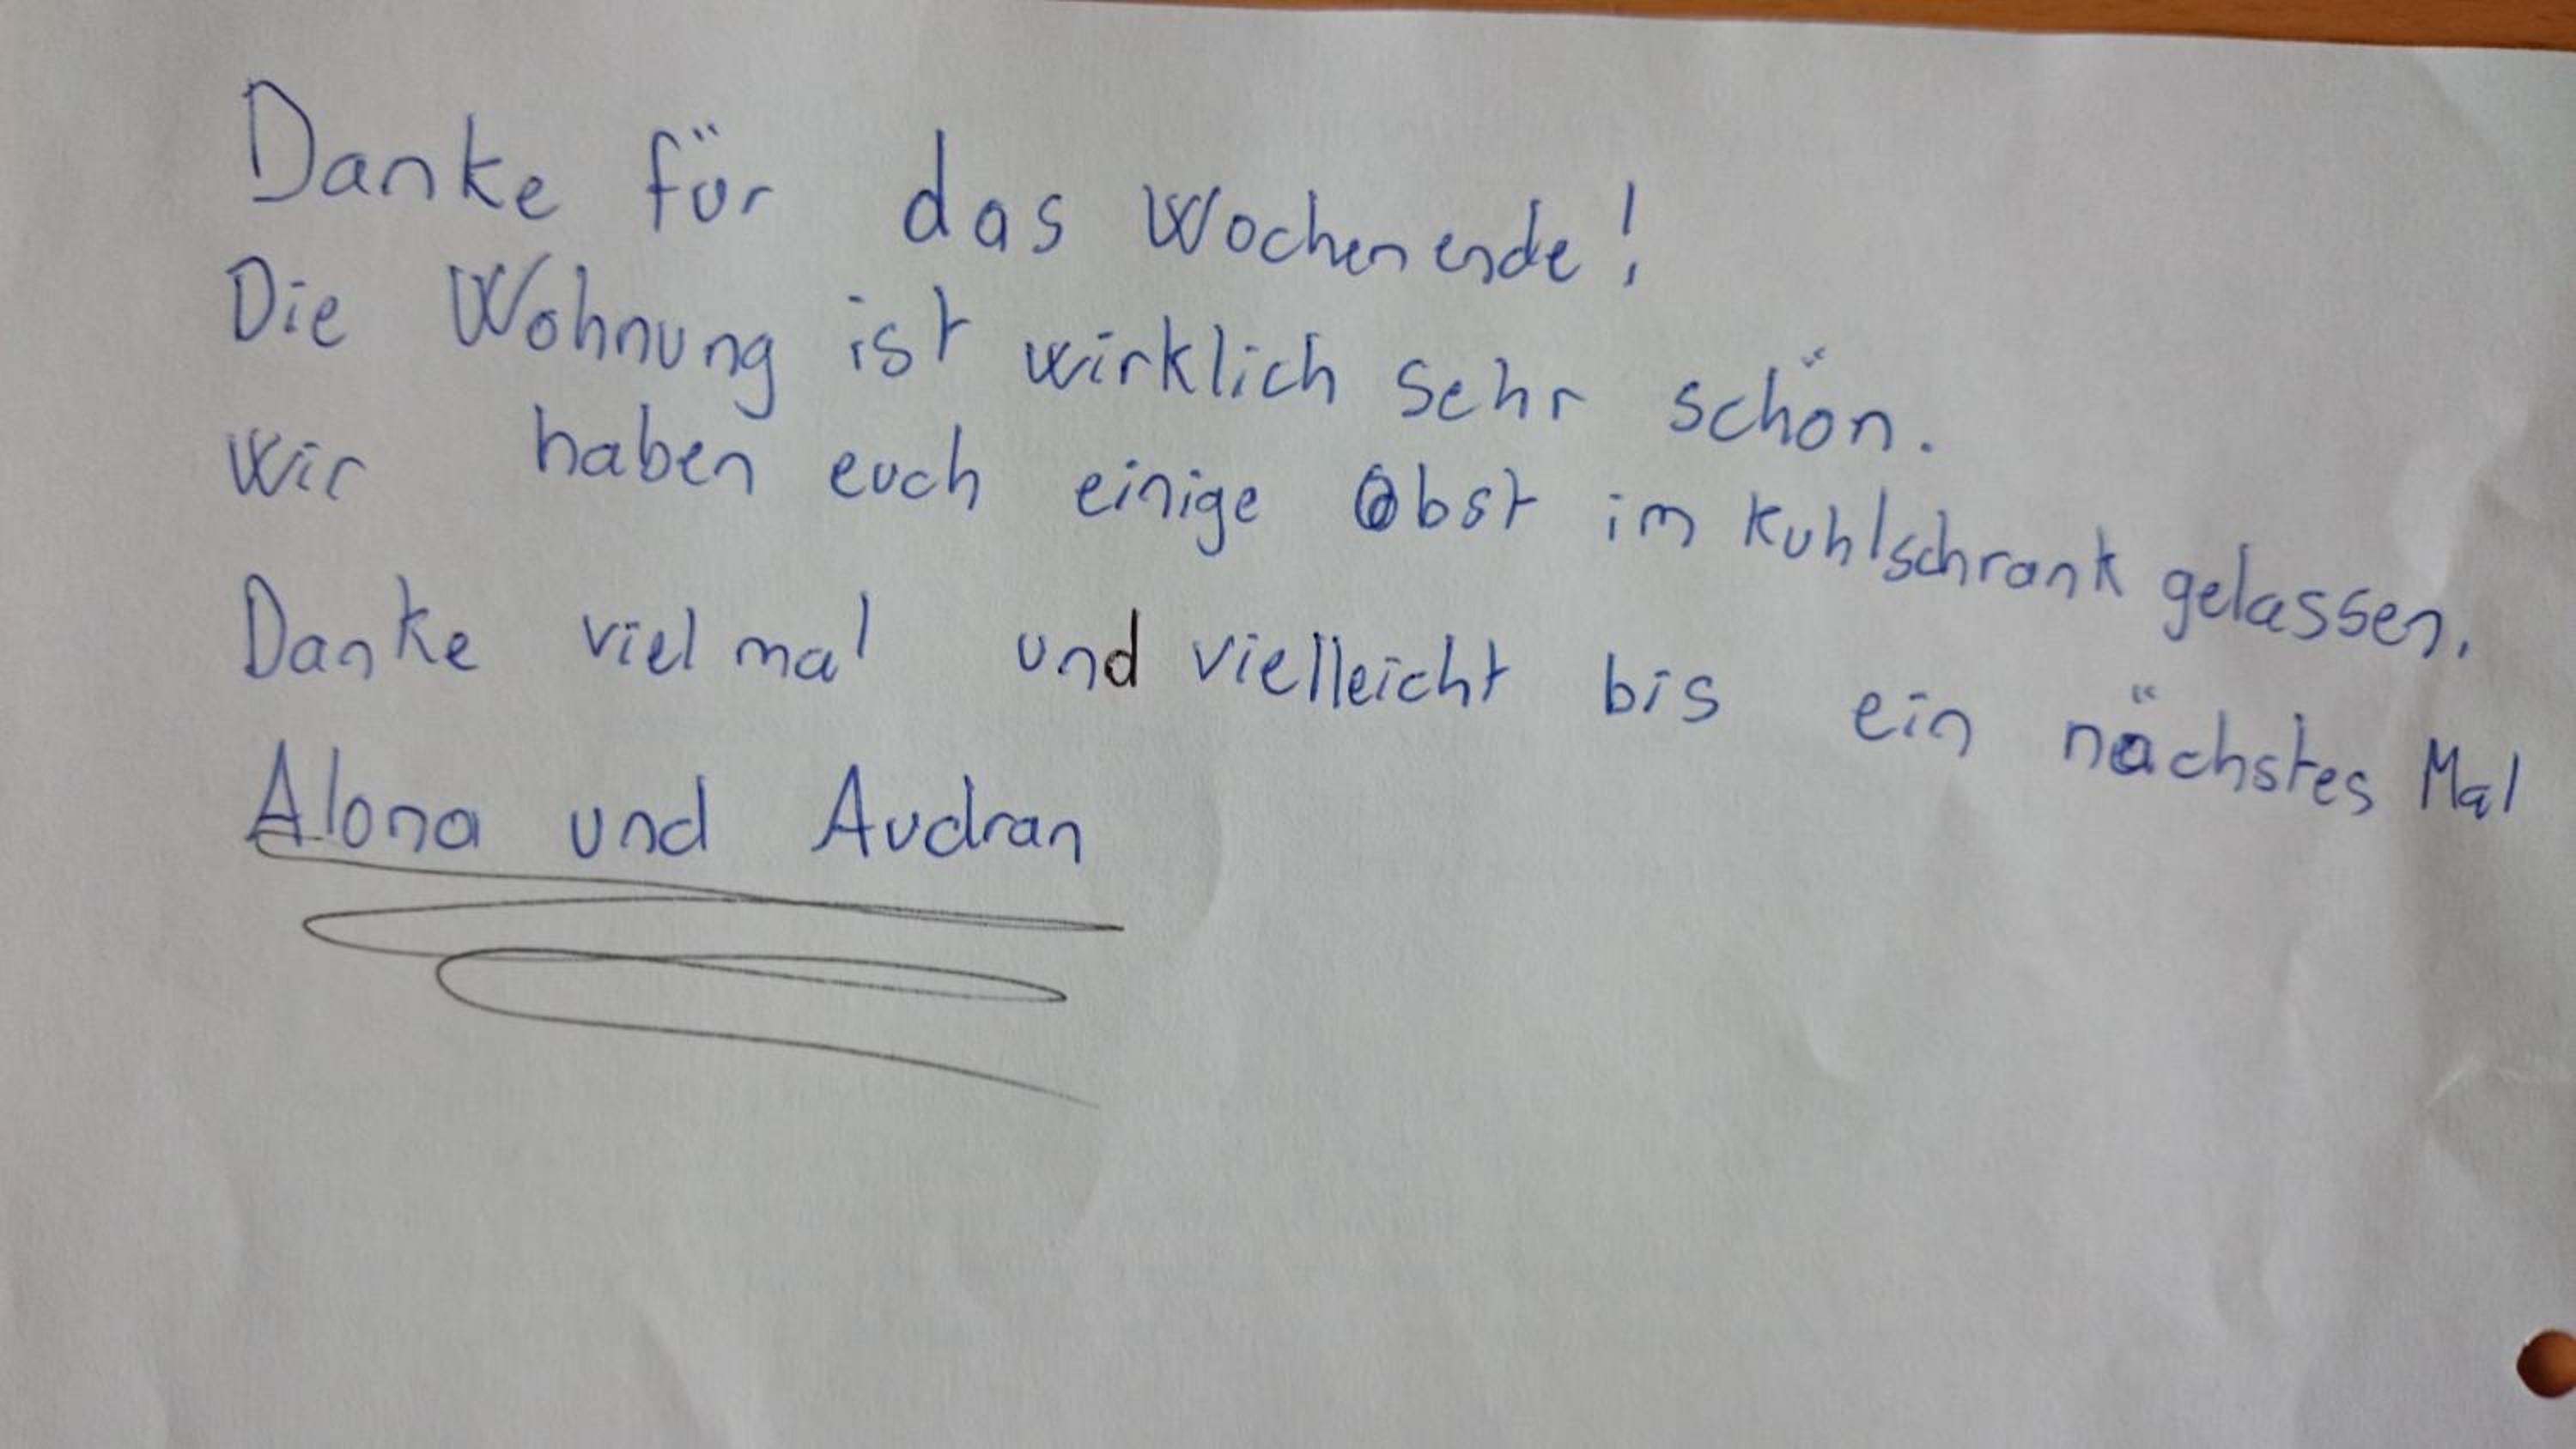 Danke für das Wochenende!
Die Wohnung ist wirklich sehr schön.
Wir haben euch einige Obst im Kuhlschrank gelassen.
Danke viel mal und vielleicht bis ein nächstes Mal
Alona und Audran